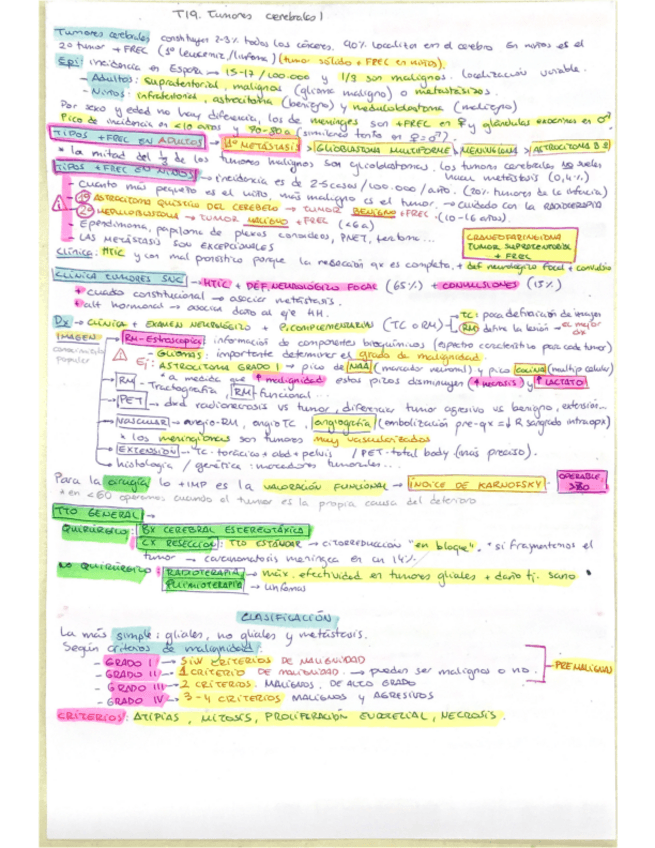 T19. Tumores cerebrales 1
Tumores cerebrales constituyen 2-3% todos los cánceres. 90% localizan en el cerebro En niños es el
2º tumor + FREC (1º leucemia/linfoma) (tumor sólido + FREC en niños).
Epi: incidencia en España → 15-17/100.000 y 1/3 son malignos. localización variable.
- Adultos: supratentorial, malignos (glioma maligno) o metástasis.
- Niños: infratentorial, astrocitoma (benigno) y meduloblastoma (maligno)
Por sexo y edad no hay diferencia, los de meninges son +FREC en ♀ y glándulas exocrinas en ♂
Pico de incidencia en <10 años y 70-80a (similares tanto en ♀=♂).
TIPOS +FREC EN ADULTOS → 1º METÁSTASIS > GLIOBLASTOMA MULTIFORME > MENINGIOMA > ASTROCITOMA B.G
* la mitad del de los tumores malignos son glioblastomas. los tumores cerebrales no suelen
hacer metástasis (0,4%)
TIPOS +FREC EN NIÑOS → incidencia es de 2-5 casos/100.000/año. (20% tumores de la infancia)
- Cuanto más pequeño es el niño más maligno es el tumor. → cuidado con la RADIOTERAPIA
- 1º ASTROCITOMA QUÍSTICO DEL CEREBELO → TUMOR BENIGNO +FREC (10-16 años).
- 2º MEDULOBLASTOMA → TUMOR MALIGNO +FREC (<6a)
- Ependimoma, papiloma de plexos coroideos, PNET, ...
- LAS METÁSTASIS SON EXCEPCIONALES
CRANEOFARINGIOMA
TUMOR SUPRATENTORIAL
+ FREC
Clínica: HTIC y con mal pronóstico porque la resección qx es completa, + def neurológico focal + convulsio
CLÍNICA TUMORES SNC → HTIC + DÉF. NEUROLÓGICO FOCAL (65%) + CONVULSIONES (15%)
+ cuadro constitucional → asociar metástasis.
+ alt hormonal → asocian daño al eje HH.
Dx → CLÍNICA + EXAMEN NEUROLÓGICO + P. COMPLEMENTARIA (TC o RM) → TC: poca definición de imagen
RM define la lesión → el mejor dx
IMAGEN → RM-Espectroscopia: información de componentes bioquímicos (espectro característico para cada tumor)
- GLIOMAS: importante determinar el grado de malignidad.
Ej: ASTROCITOMA GRADO I → pico de NAA (marcador neuronal) y pico COLINA (multip celular)
* a medida que ↑ malignidad estos picos disminuyen (↑ necrosis) y ↑ LACTATO
RM - Tractografía, RM funcional...
PET - dxd radionecrosis vs tumor, diferenciar tumor agresivo vs benigno, extensión...
VASCULAR → angio-RM, angio TC, angiografía (embolización pre-qx = ↓ R sangrado intraqx)
* los meningiomas son tumores muy vascularizados
EXTENSIÓN - TC: torácico + abd + pelvis / PET-total body (más preciso).
histología / genética: marcadores tumorales...
Para la cirugía lo +IMP es la VALORACIÓN FUNCIONAL → ÍNDICE DE KARNOFSKY. OPERABLE >70
* en <60 operamos cuando el tumor es la propia causa del deterioro
TTO GENERAL →
QUIRÚRGICO: BX CEREBRAL ESTEREOTÁXICA
CX RESECCIÓN: TTO ESTÁNDAR → citorreducción "en bloque". * si fragmentamos el
tumor → carcinomatosis meníngea en un 14%.
NO QUIRÚRGICO: RADIOTERAPIA → máx. efectividad en tumores gliales + daño tj. sano
QUIMIOTERAPIA → linfomas
CLASIFICACIÓN
La más simple: gliales, no gliales y metástasis.
Según criterios de malignidad:
- GRADO I → SIN CRITERIOS DE MALIGNIDAD
- GRADO II → 1 CRITERIO DE MALIGNIDAD → pueden ser malignos o no. - PREMALIGNAS
- GRADO III → 2 CRITERIOS. MALIGNOS, DE ALTO GRADO
- GRADO IV → 3-4 CRITERIOS MALIGNOS Y AGRESIVOS
CRITERIOS: ATIPIAS, MITOSIS, PROLIFERACIÓN ENDOTELIAL, NECROSIS.